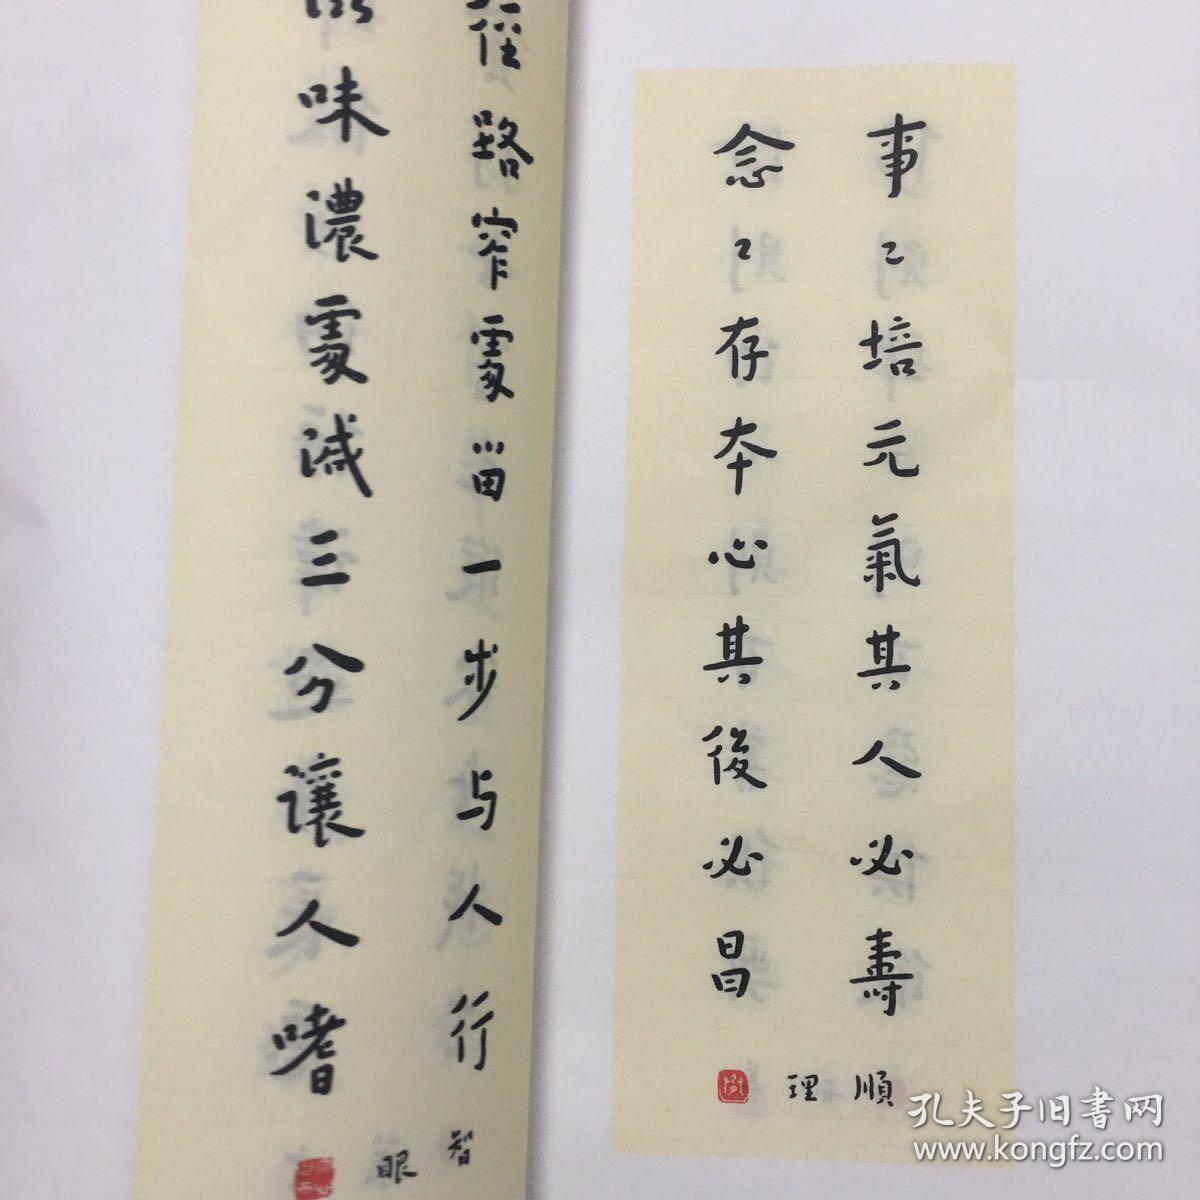 事〻培元氣其人必壽
念〻存本心其後必昌
順
理
徑路窄處留一步与人行
味濃處減三分讓人嗜
智
眼
孔夫子旧書网
www.kongfz.com